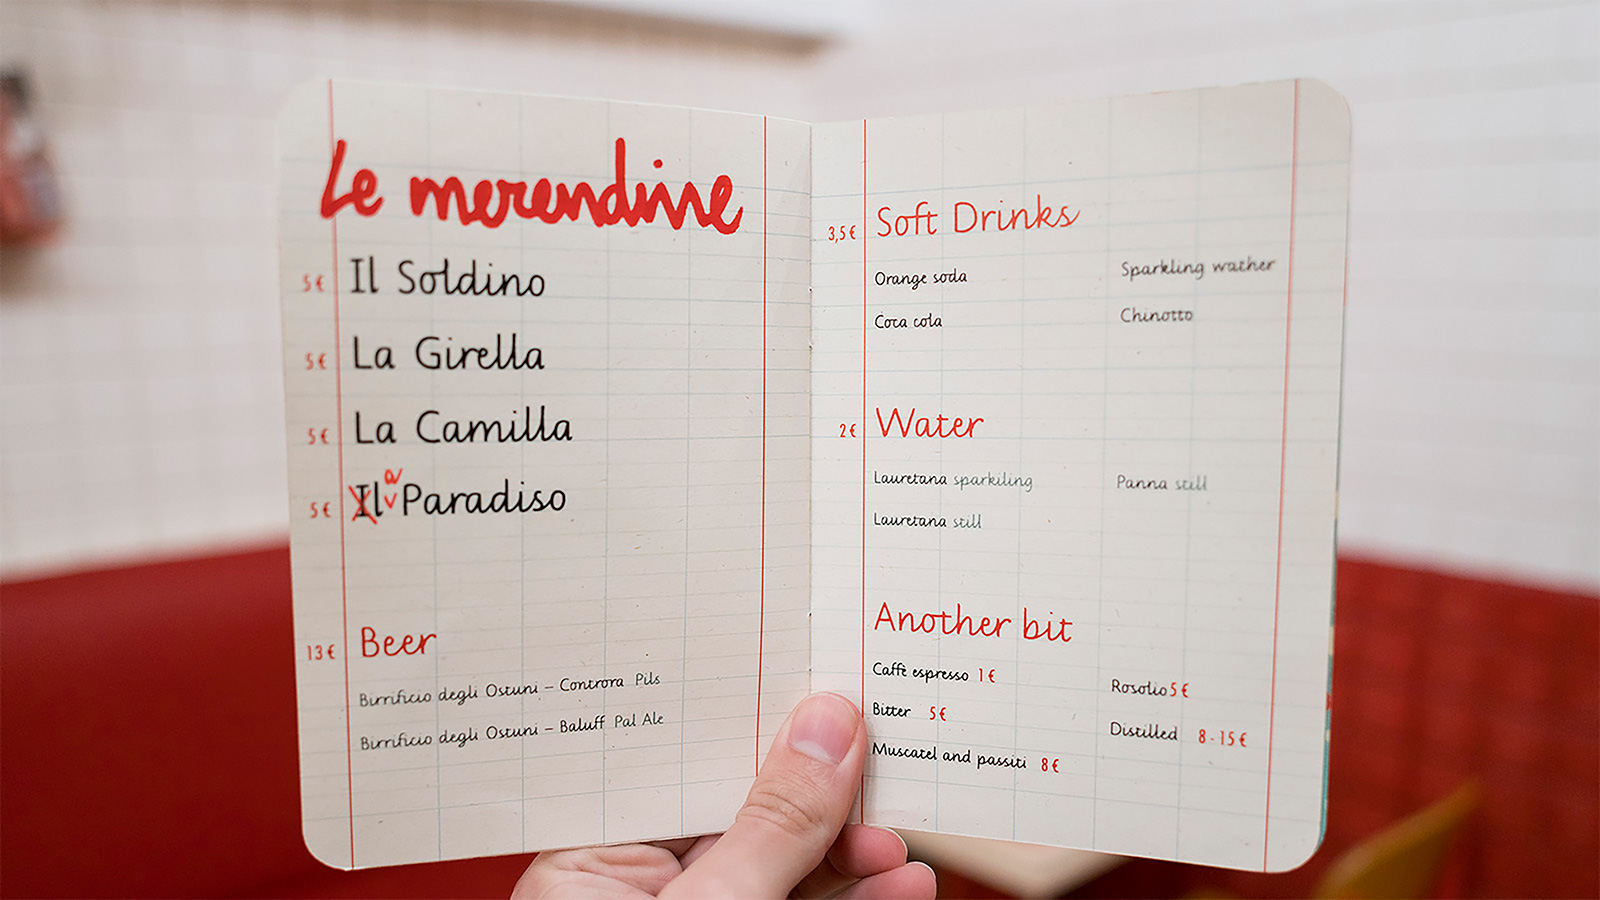 Le merendine
5€ Il Soldino
5€ La Girella
5€ La Camilla
5€ Il a Paradiso
13€ Beer
Birrificio degli Ostuni – Controra Pils
Birrificio degli Ostuni – Baluff Pal Ale
3,5€ Soft Drinks
Orange soda Sparkling wather
Coca cola Chinotto
2€ Water
Lauretana sparkiling Panna still
Lauretana still
Another bit
Caffè espresso 1€ Rosolio 5€
Bitter 5€ Distilled 8-15€
Muscatel and passiti 8€